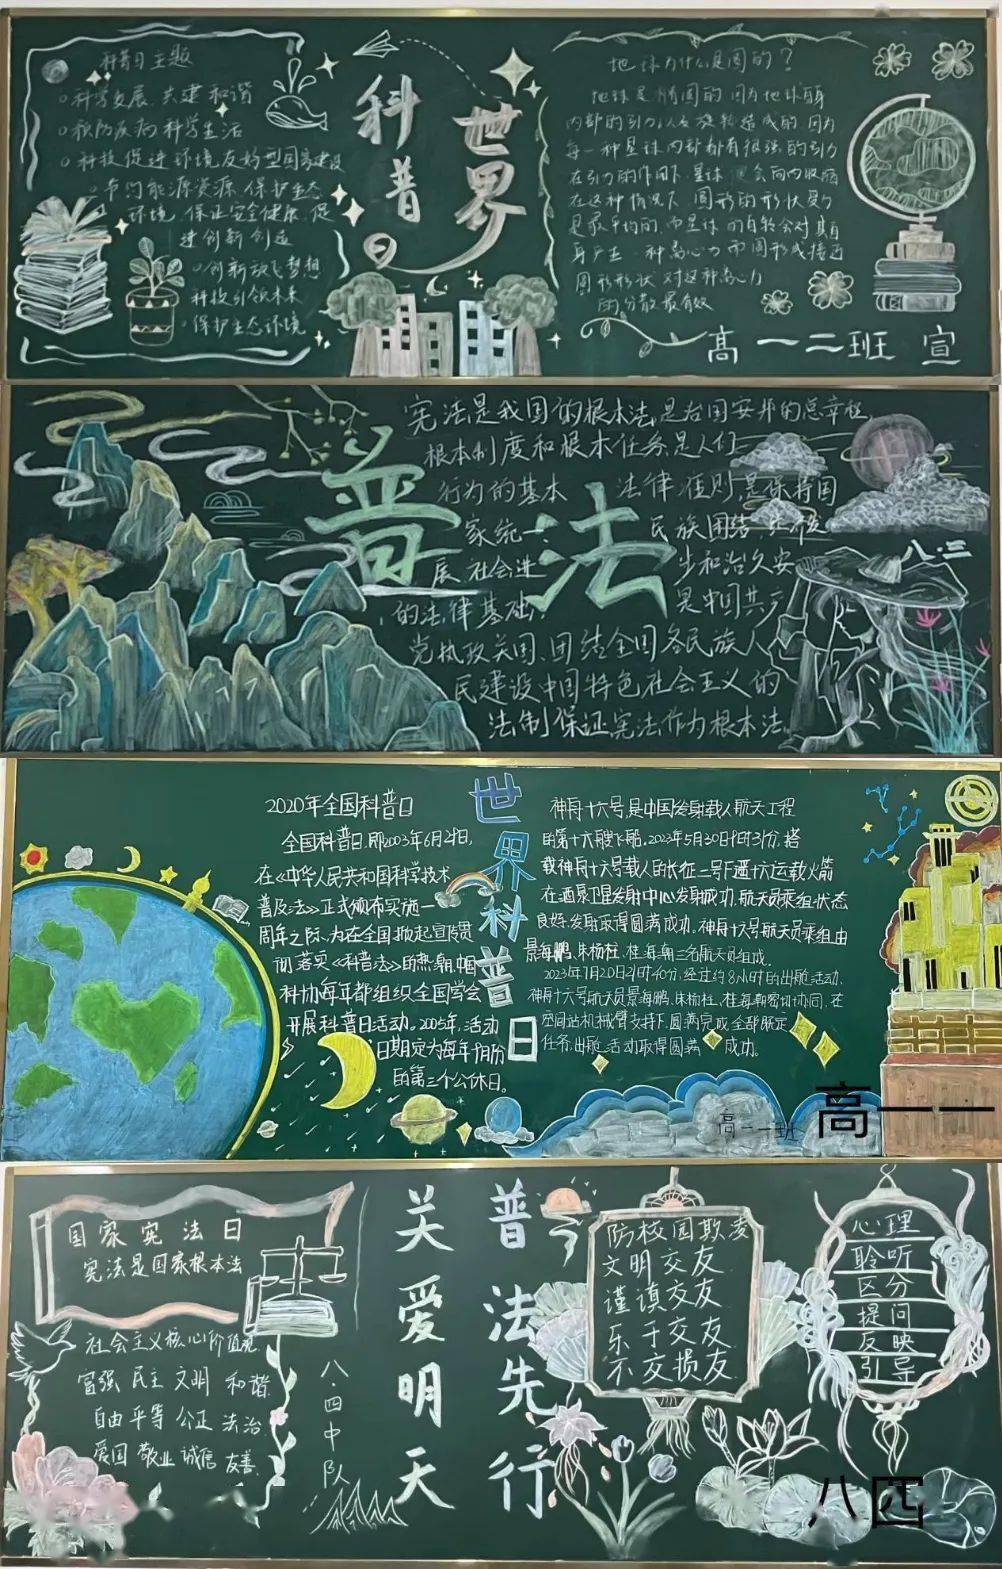 科普日主题
科学发展 共建和谐
预防疾病 科学生活
科技促进环境友好型国家建设
节约能源资源 保护生态
环境 保证安全健康 促
进创新创造
创新放飞梦想
科技引领未来
保护生态环境
科普
世界
日
地球为什么是圆的？
地球是椭圆的 因为地球自身
内部的引力以及旋转造成的 因为
每一种星球内部都有很强的引力
在引力的作用下 星球 会向内收缩
在这种情况下 圆形的形状受力
是最平均的 而星球的自转会对其自
身产生一种离心力 而圆形或接近
圆形形状 对这种离心力
的分散最有效
高一二班 宣
宪法是我国的根本法,是治国安邦的总章程,
根本制度和根本任务,是人们
行为的基本 法律准则,是保持国
家统一、 民族团结、
展、社会进 步和治久安
的法律基础, 是中国共产
党执政兴国、团结全国各民族人
民建设中国特色社会主义的
法制保证宪法作为根本法。
普法
八.三
2020年全国科普日
全国科普日,即2003年6月29日,
在《中华人民共和国科学技术
普及法》正式颁布实施一
周年之际,为在全国掀起宣贯
彻落实《科普法》的热潮,中国
科协每年都组织全国学会
开展科普日活动。2005年,活动
日期定为每年9月份
的第三个公休日。
世界科普日
神舟十六号,是中国发射载人航天工程
的第十六艘飞船,2023年5月30日9时31分,搭
载神舟十六号载人的长征二号F遥十六运载火箭
在酒泉卫星发射中心发射成功,航天员乘组状态
良好,发射取得圆满成功,神舟十六号航天员乘组由
景海鹏,朱杨柱,桂海潮三名航天员组成。
2023年7月20日21时40分,经过约8小时的出舱活动,
神舟十六号航天员景海鹏,朱杨柱,桂海潮密切协同,在
空间站机械臂支持下,圆满完成全部既定
任务,出舱活动取得圆满成功。
高一一班
高一一
国家宪法日
宪法是国家根本法
社会主义核心价值观
富强 民主 文明 和谐
自由 平等 公正 法治
爱国 敬业 诚信 友善
八.四中队
关爱明天
普法先行
防校园欺凌
文明交友
谨慎交友
乐于交友
不交损友
心理
聆听
区分
提问
反映
引导
八四